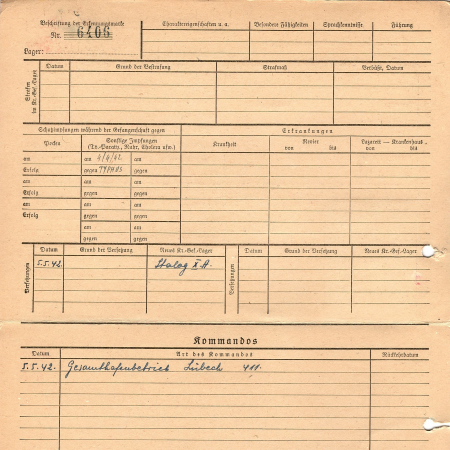 Beschriftung der Erkennungsmarke
Nr. 6406
Lager:
Charaktereigenschaften u. a.
Besondere Fähigkeiten
Sprachkenntnisse
Führung
Strafen im Kr.-Gef.-Lager
Datum
Grund der Bestrafung
Strafmaß
Verbüßt, Datum
Schutzimpfungen während der Gefangenschaft gegen
Erkrankungen
Pocken
Sonstige Impfungen
(Ty.-Paraty., Ruhr, Cholera usw.)
Krankheit
Revier
von bis
Lazarett — Krankenhaus
von bis
am am 4/4/42 am
Erfolg gegen TYPHUS gegen
am am am
Erfolg gegen gegen
am am am
Erfolg gegen gegen
am am
gegen gegen
Versetzungen
Datum
Grund der Versetzung
Neues Kr.-Gef.-Lager
Versetzungen
Datum
Grund der Versetzung
Neues Kr.-Gef.-Lager
5.5.42. Stalag X A.
Kommandos
Datum
Art des Kommandos
Rückkehrdatum
5.5.42. Gesamthafenbetrieb Lübeck 411.